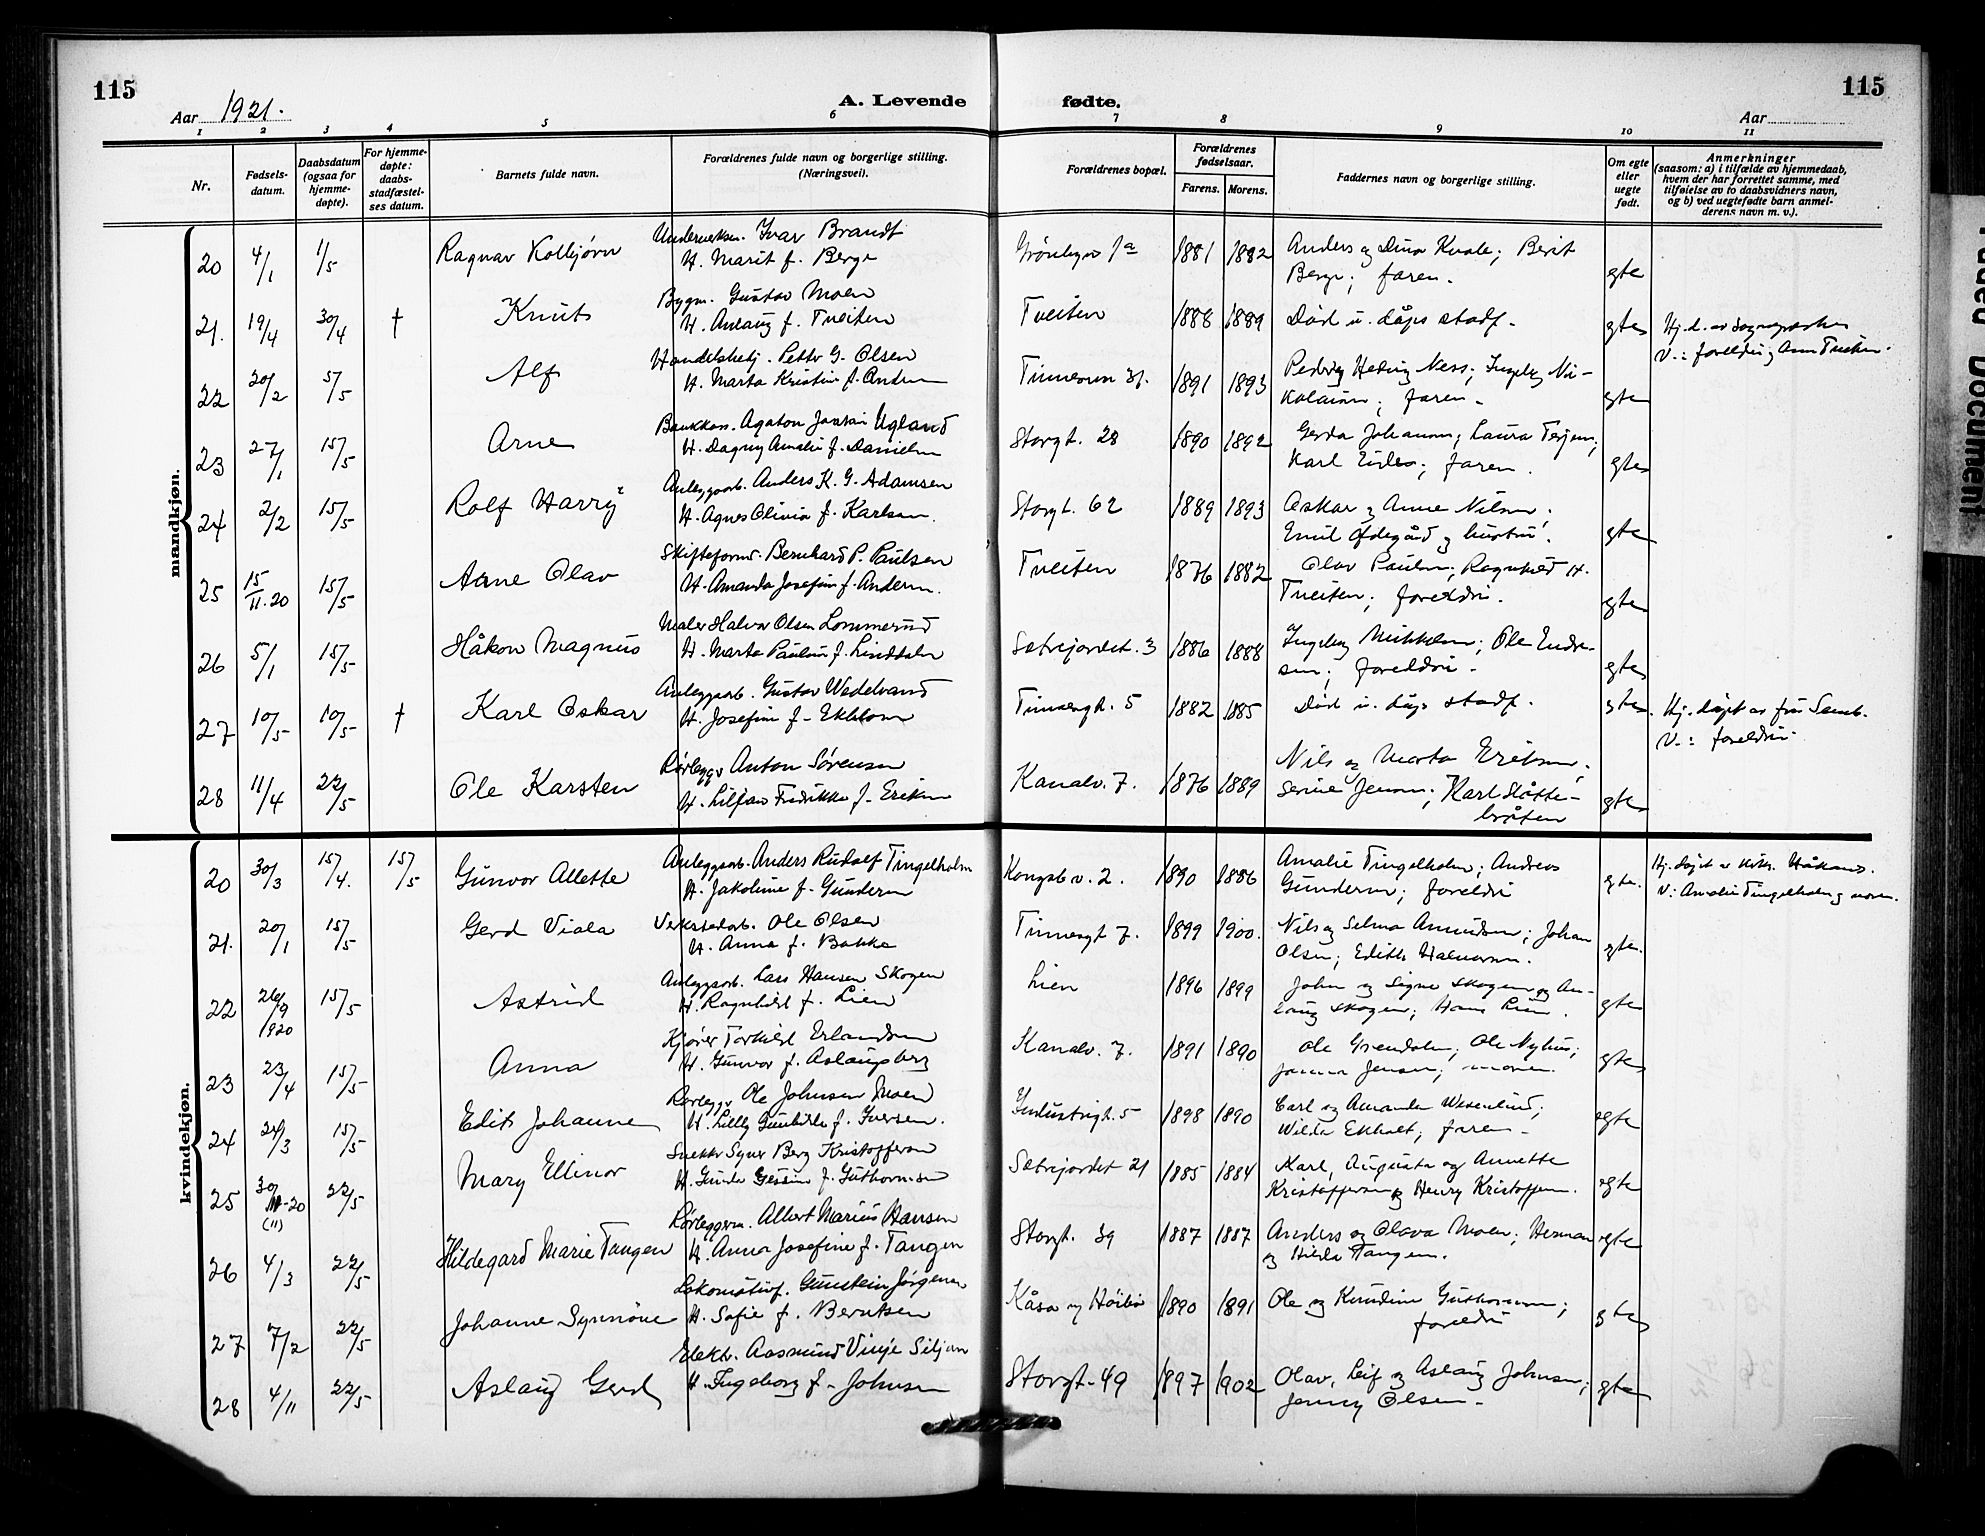 115
115
Aar 1921.
A. Levende fødte.
Aar
1 2 3 4 5 6 7 8 9 10 11
Nr.
Fødsels-
datum.
Daabsdatum
(ogsaa for
hjemme-
døpte).
For hjemme-
døpte:
daabs-
stadfæstel-
ses datum.
Barnets fulde navn.
Forældrenes fulde navn og borgerlige stilling.
(Næringsvei).
Forældrenes bopæl.
Forældrenes
fødselsaar.
Farens. Morens.
Faddernes navn og borgerlige stilling.
Om egte
eller
uegte
født.
Anmerkninger
(saasom: a) i tilfælde av hjemmedaab,
hvem der har forrettet samme, med
tilføielse av to daabsvidners navn,
og b) ved uegtefødte barn anmel-
derens navn m. v.).
mandkjøn.
20 4/1 1/5 Ragnar Kolbjørn Ivar Brandt
H. Marit f. Berge 1a 1881 1882 Anders og Dina Kvale; Berit
Berge; faren. egte
21. 19/4 30/4 † Knut Bygm. Gustav Moen
H. Aslaug f. Tveiten Tveiten 1888 1889 Død u. dåps stadf. egte
V.: foreldre og Ann Tveiten.
22 20/2 5/5 Alf Petter G. Olsen
H. Marta Kristine f. Andersen 31. 1891 1893 Peder og Hedvig Ness; Ingeborg Ni-
kolaisen; faren. egte
23 27/1 15/5 Arne Bankkass. Agaton Ugland
H. Dagny Amalie f. Danielsen Storgt. 28 1890 1892 Gerda Johansen; Laura Terjesen;
Karl; faren. egte
24 2/2 15/5 Rolf Harry Anleggsarb. Anders K. G. Adamsen
H. Agnes Olivia f. Karlsen. Storgt. 62 1889 1893 Oskar og Anne Nilsen;
Emil Ødegård og hustru. egte
25 15/11.20 15/5 Arne Olav Skifteform. Bernhard P. Paulsen
H. Amanda Josefine f. Andersen. Tveiten 1876 1882 Olav Paulsen; Ragnhild H.
Tveiten; foreldre. egte
26 5/1 15/5 Håkon Magnus Maler Halvor Olsen Lommerud
H. Marta Pauline f. Lindtdalen Sætrejordet. 3 1886 1888 Ingeborg Mikkelsen; Ole Endre-
sen; foreldre. egte
27 10/5 10/5 † Karl Oskar Anleggsarb. Gustav Wedelvand
H. Josefine f. Ekblom Tinnesgt. 5 1882 1885 Død u. dåps stadf. egte. Hj. døpt av fru
V.: foreldre.
28 11/4 22/5 Ole Karsten Rørlegger Anton Sørensen
H. Fredrikke f. Eriksen Kanalv. 7. 1876 1889 Nils og Marta Eriksen;
Serine Jensen; Karl Slåtte-
bråten egte
kvindekjøn.
20 30/3 15/4. 15/5 Gunvor Alette Anleggsarb. Anders Rudolf Tingelholm
H. Jakobine f. Gundersen Kongsb v. 2. 1890 1886 Amalie Tingelholm; Andreas
Gundersen; foreldre egte. Hj. døpt av Håkans.
V: Amalie Tingelholm og moren.
21. 20/1 15/5 Gerd Viola Verkstedarb. Ole Olsen
H. Anna f. Bakke Tinnesgt 7. 1899 1900. Nils og Selma Amundsen; Johan
Olsen; Edith Halvorsen. egte.
22 26/9 1920 15/5 Astrid Anleggsarb. Lars Hansen Skogen
H. Ragnhild f. Lien Lien 1896 1899 John og Signe Skogen og As-
laug Skogen; Hans Lien. egte
23 23/4 15/5 Anna Kjører Torkild Erlandsen
H. Gunvor f. Aslaugsberg Kanalv. 7. 1891 1890 Ole Grendalen; Ole Nyhus;
Jensen; moren. egte
24 24/3 15/5 Edit Johanne Rørlegger Ole Johnsen Moen
H. Lilly Gunhilde f. Iversen. Industrigt. 5 1898 1890 Carl og Amanda Wesenlund;
Wilda Ekholt; faren. egte
25 30/11-20 (11) 22/5 Mary Ellinor Snekker Syver Berg Kristoffersen
H. Gunda Gessine f. Guthormsen Sætrejordet 21 1885 1884 Karl, Augusta og Annette
Kristoffersen og Henry Kristoffersen. egte
26 4/3 22/5 Hildegard Marie Tangen Rørleggerm. Albert Marius Hansen
H. Anna Josefine f. Tangen Storgt. 39 1887 1887 Anders og Olava Moen; Herman
og Hilda Tangen. egte
27 7/2 22/5 Johanne Synnøve Lokomotivf. Gunstein Jørgensen
H. Sofie f. Berntsen Kåsa og Høibø 1890 1891 Ole og Kundine Guthormsen;
foreldre egte
28 4/11 22/5 Aslaug Gerd Elekt. Aasmund Vinje Siljan
H. Ingeborg f. Johnsen Storgt. 49 1897 1902 Olav, Leif og Aslaug Johnsen;
Jenny Olsen. egte
Document